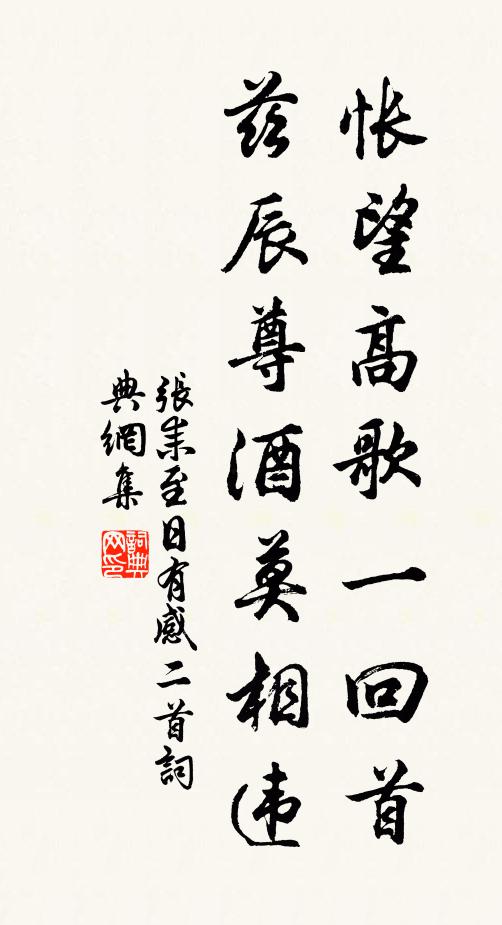 悵望高歌一回首
茲辰尊酒莫相违
張耒至日有感二首詞
典網集
詞典
网印